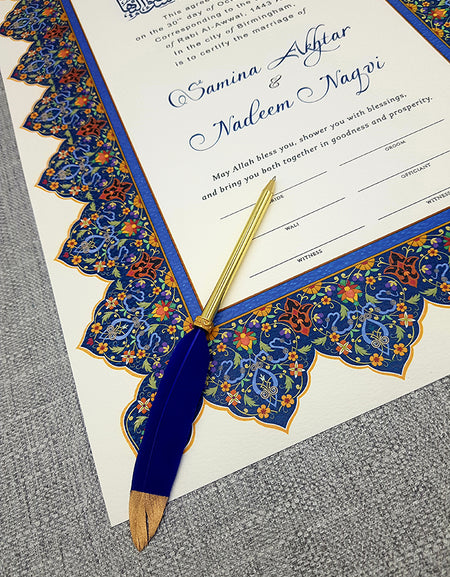 This agree
on the 30th day of Oc
Corresponding to the
of Rabi Al-Awwal, 1443
in the city of Birmingham,
is to certify the marriage of
Samina Akhtar
&
Nadeem Naqvi
May Allah bless you, shower you with blessings,
and bring you both together in goodness and prosperity.
IDE
GROOM
WALI
OFFICIANT
WITNESS
WITNESS